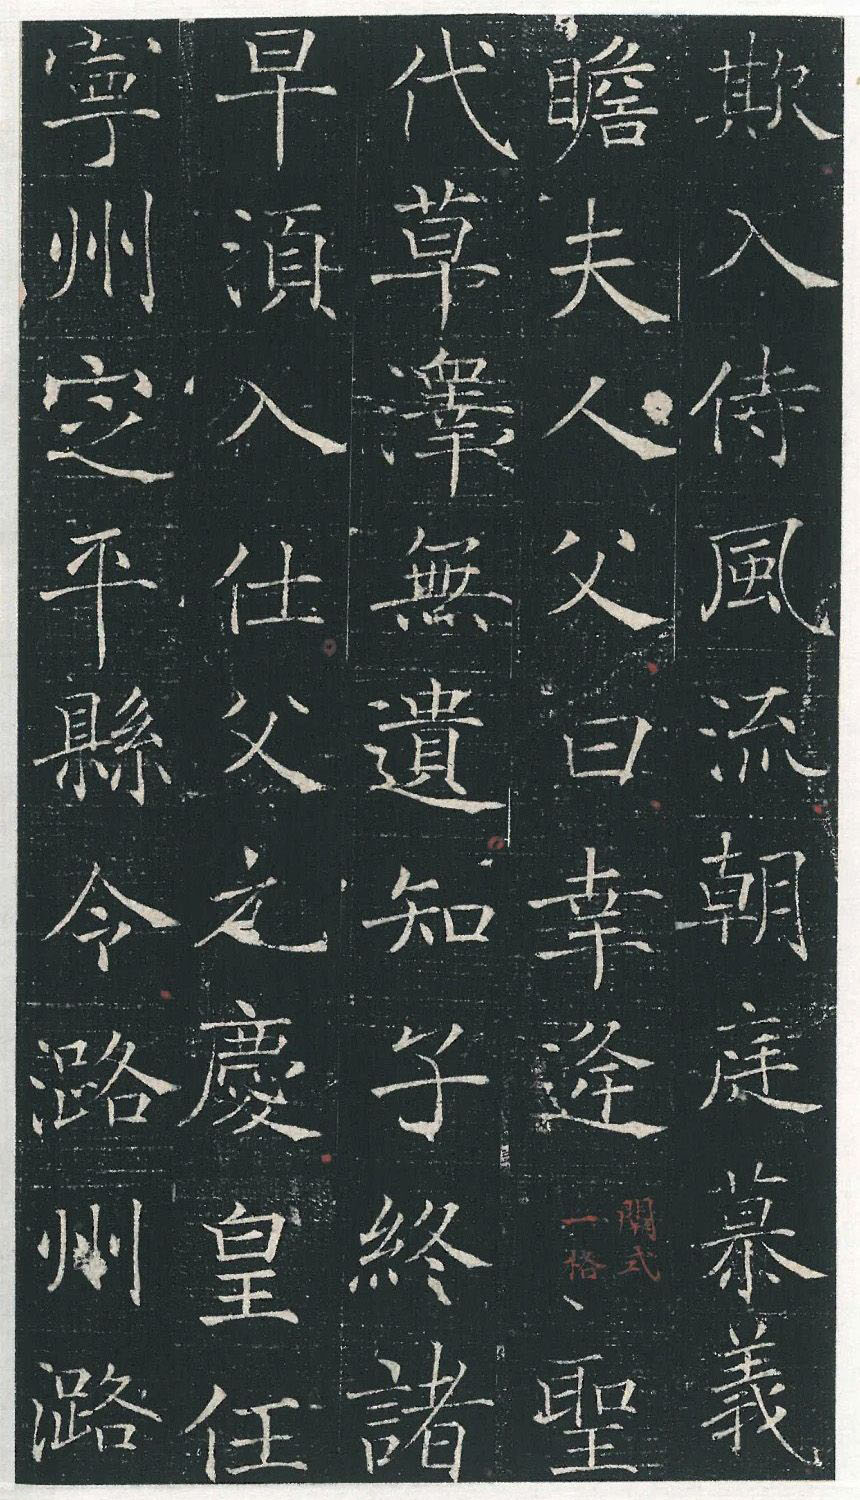 欺入侍風流朝庭慕義
瞻夫人父曰幸逢聖
式
一格
代草澤無遺知子終諸
早湏入仕父元慶皇任
寧州定平縣令潞州潞